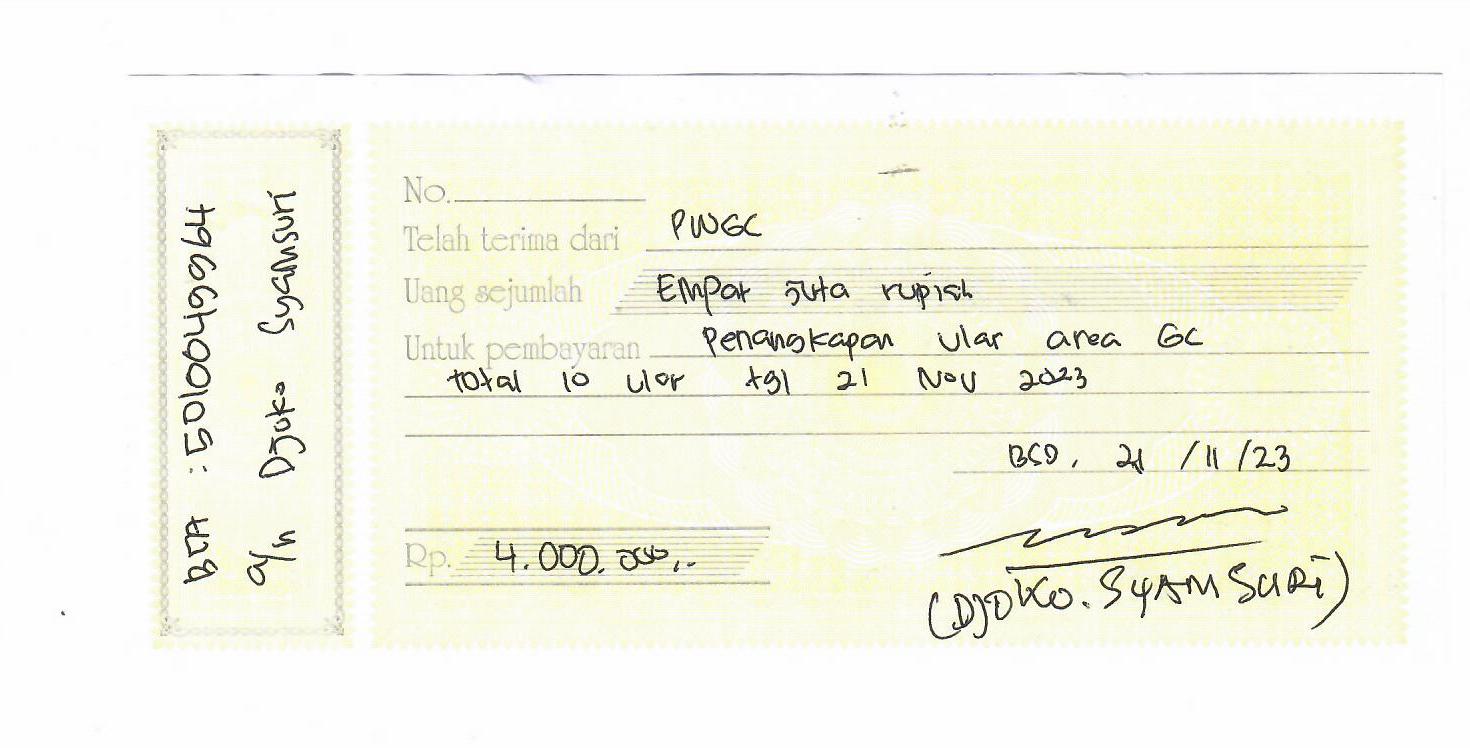 BCA : 5010049964
a/n Djoko Syamsuri
No.
Telah terima dari PWGC
Uang sejumlah Empat Juta rupiah
Untuk pembayaran Penangkapan ular area GC
total 10 ular tgl 21 Nov 2023
BSD, 21 /11 /23
Rp. 4.000.000,-
(DJOKO. SYAMSURI)